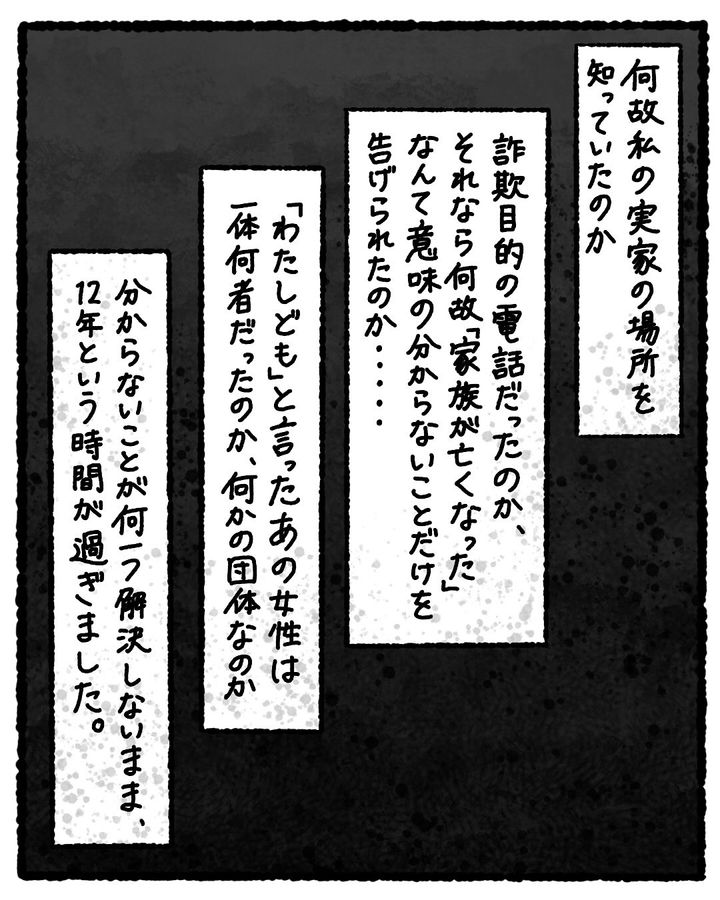 何故私の実家の場所を
知っていたのか
詐欺目的の電話だったのか、
それなら何故「家族が亡くなった」
なんて意味の分からないことだけを
告げられたのか・・・・・
「わたしども」と言ったあの女性は
一体何者だったのか、何かの団体なのか
分からないことが何一つ解決しないまま、
12年という時間が過ぎました。